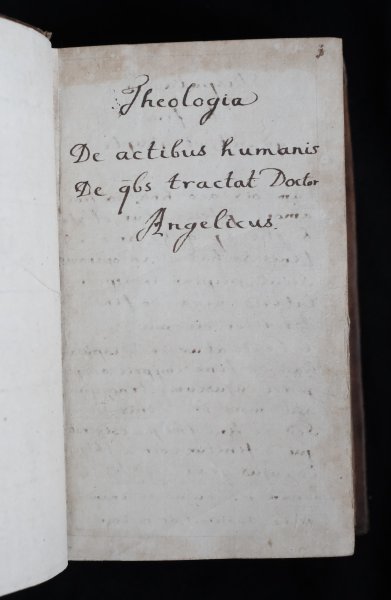 Theologia
De actibus humanis
De q̄bs tractat Doctor
Angelicus.